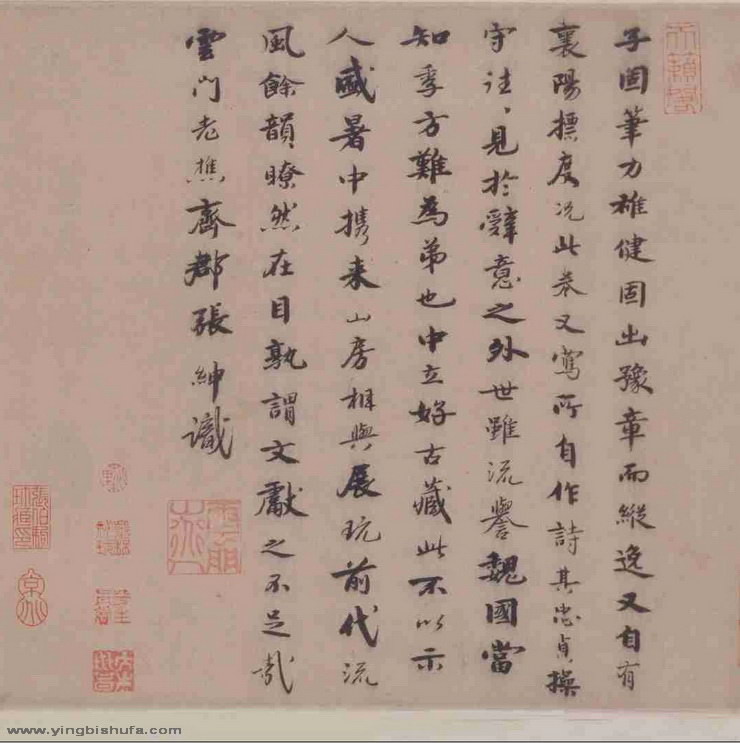 子固筆力雄健固出豫章而縱逸又自有
襄陽標度况此卷又寫所自作詩其忠貞操
守往〻見於辭意之外世雖流譽魏國當
知季方難為弟也中立好古藏此不以示
人盛暑中携来山房相與展玩前代流
風餘韻瞭然在目孰謂文獻之不足哉
雲門老樵齊郡張紳識
www.yingbishufa.com